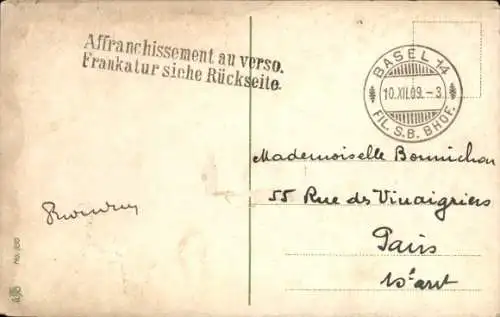 Affranchissement au verso.
Frankatur siehe Rückseite.
BASEL 14
10.XII.09.-3
FIL. S.B. BHOF.
Mademoiselle Bonnichon
55 Rue des Vinaigriers
Paris
10e arrt
No. 166